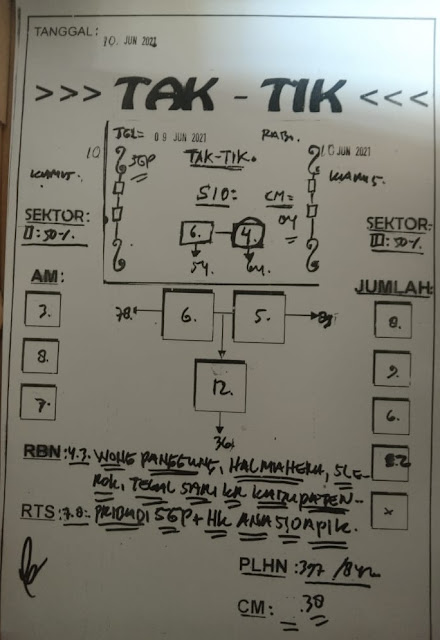 TANGGAL: 10. JUN 2021
>>> TAK - TIK <<<
TGL= 09 JUN 2021
RABU.
10 JUN 2021
10
SGP
TAK-TIK.
KAMIS.
KAMIS.
SIO:
CM=
04
SEKTOR:
II: 50%.
SEKTOR:
III: 50%.
6. 4.
54. 64.
AM:
JUMLAH:
78. 6. 5.
7. 8.
8. 9.
12.
7. 6.
36
RBN: 4.3. WONG PANGGUNG, HALMAHERA, SLE-
ROK, TEGAL SARI KR KABUPATEN
RTS: 7.8: PRIBADI SGP + HK ANA SIO APIK.
x
PLHN :
CM: 38